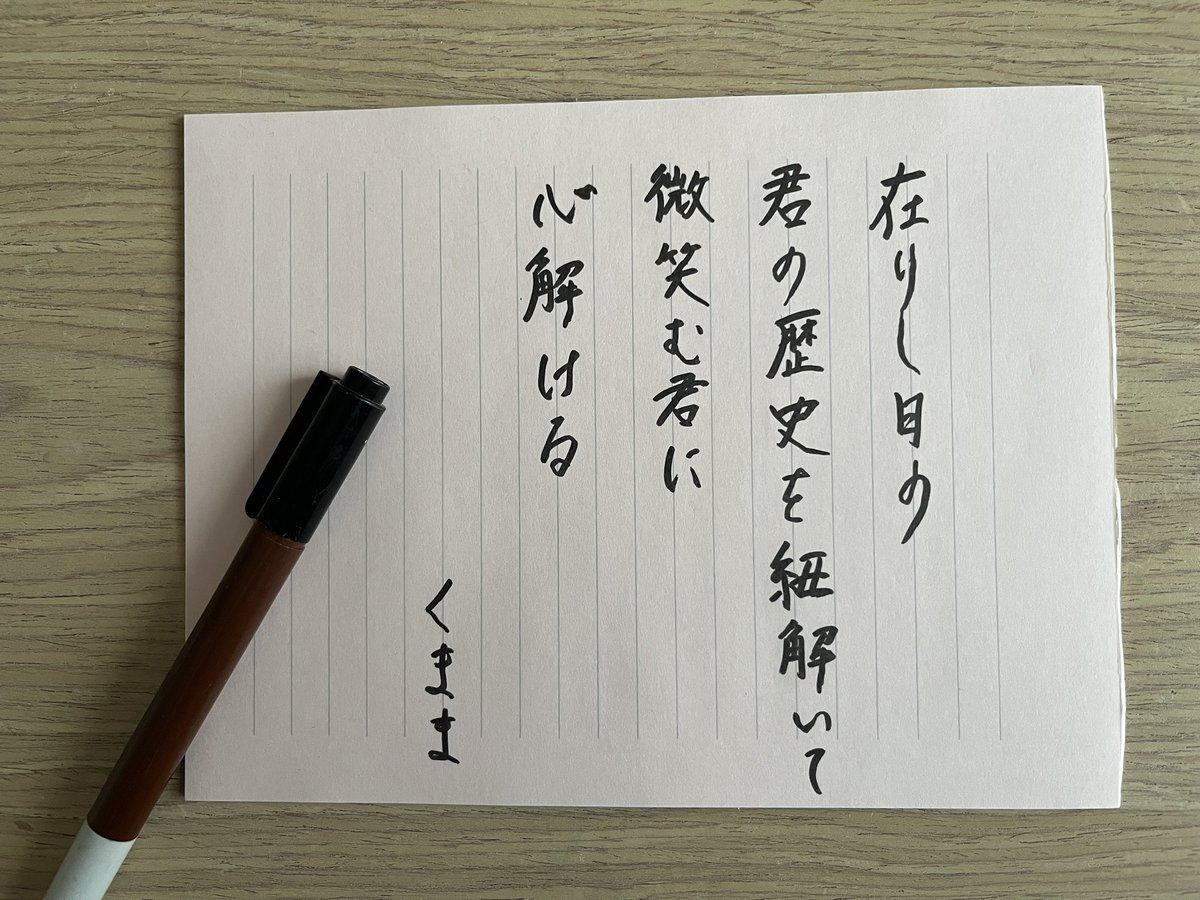 在りし日の
君の歴史を紐解いて
微笑む君に
心解ける
くまま